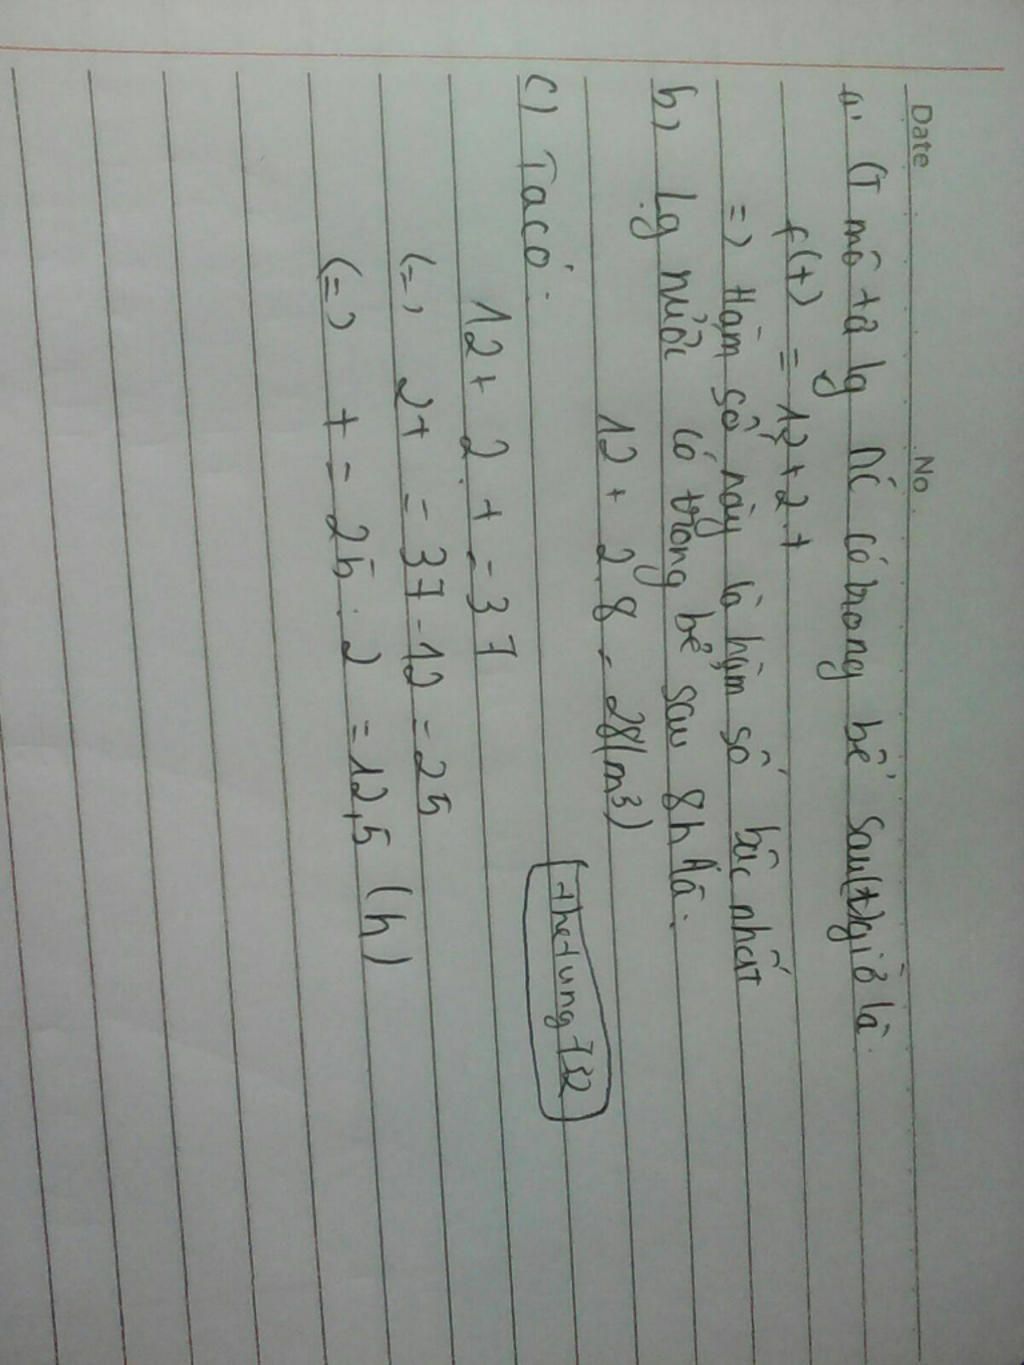 Date No
a, CT mô tả lg nc có trong bể sau (t) giờ là:
f(t) = 12 + 2.t
=> Hàm số này là hàm số bậc nhất
b) Lg nước có trong bể sau 8h là:
12 + 2.8 = 28 (m³)
c) Ta có:
thetung732
12 + 2.t = 37
(=) 2t = 37 - 12 = 25
(=) t = 25 : 2 = 12,5 (h)